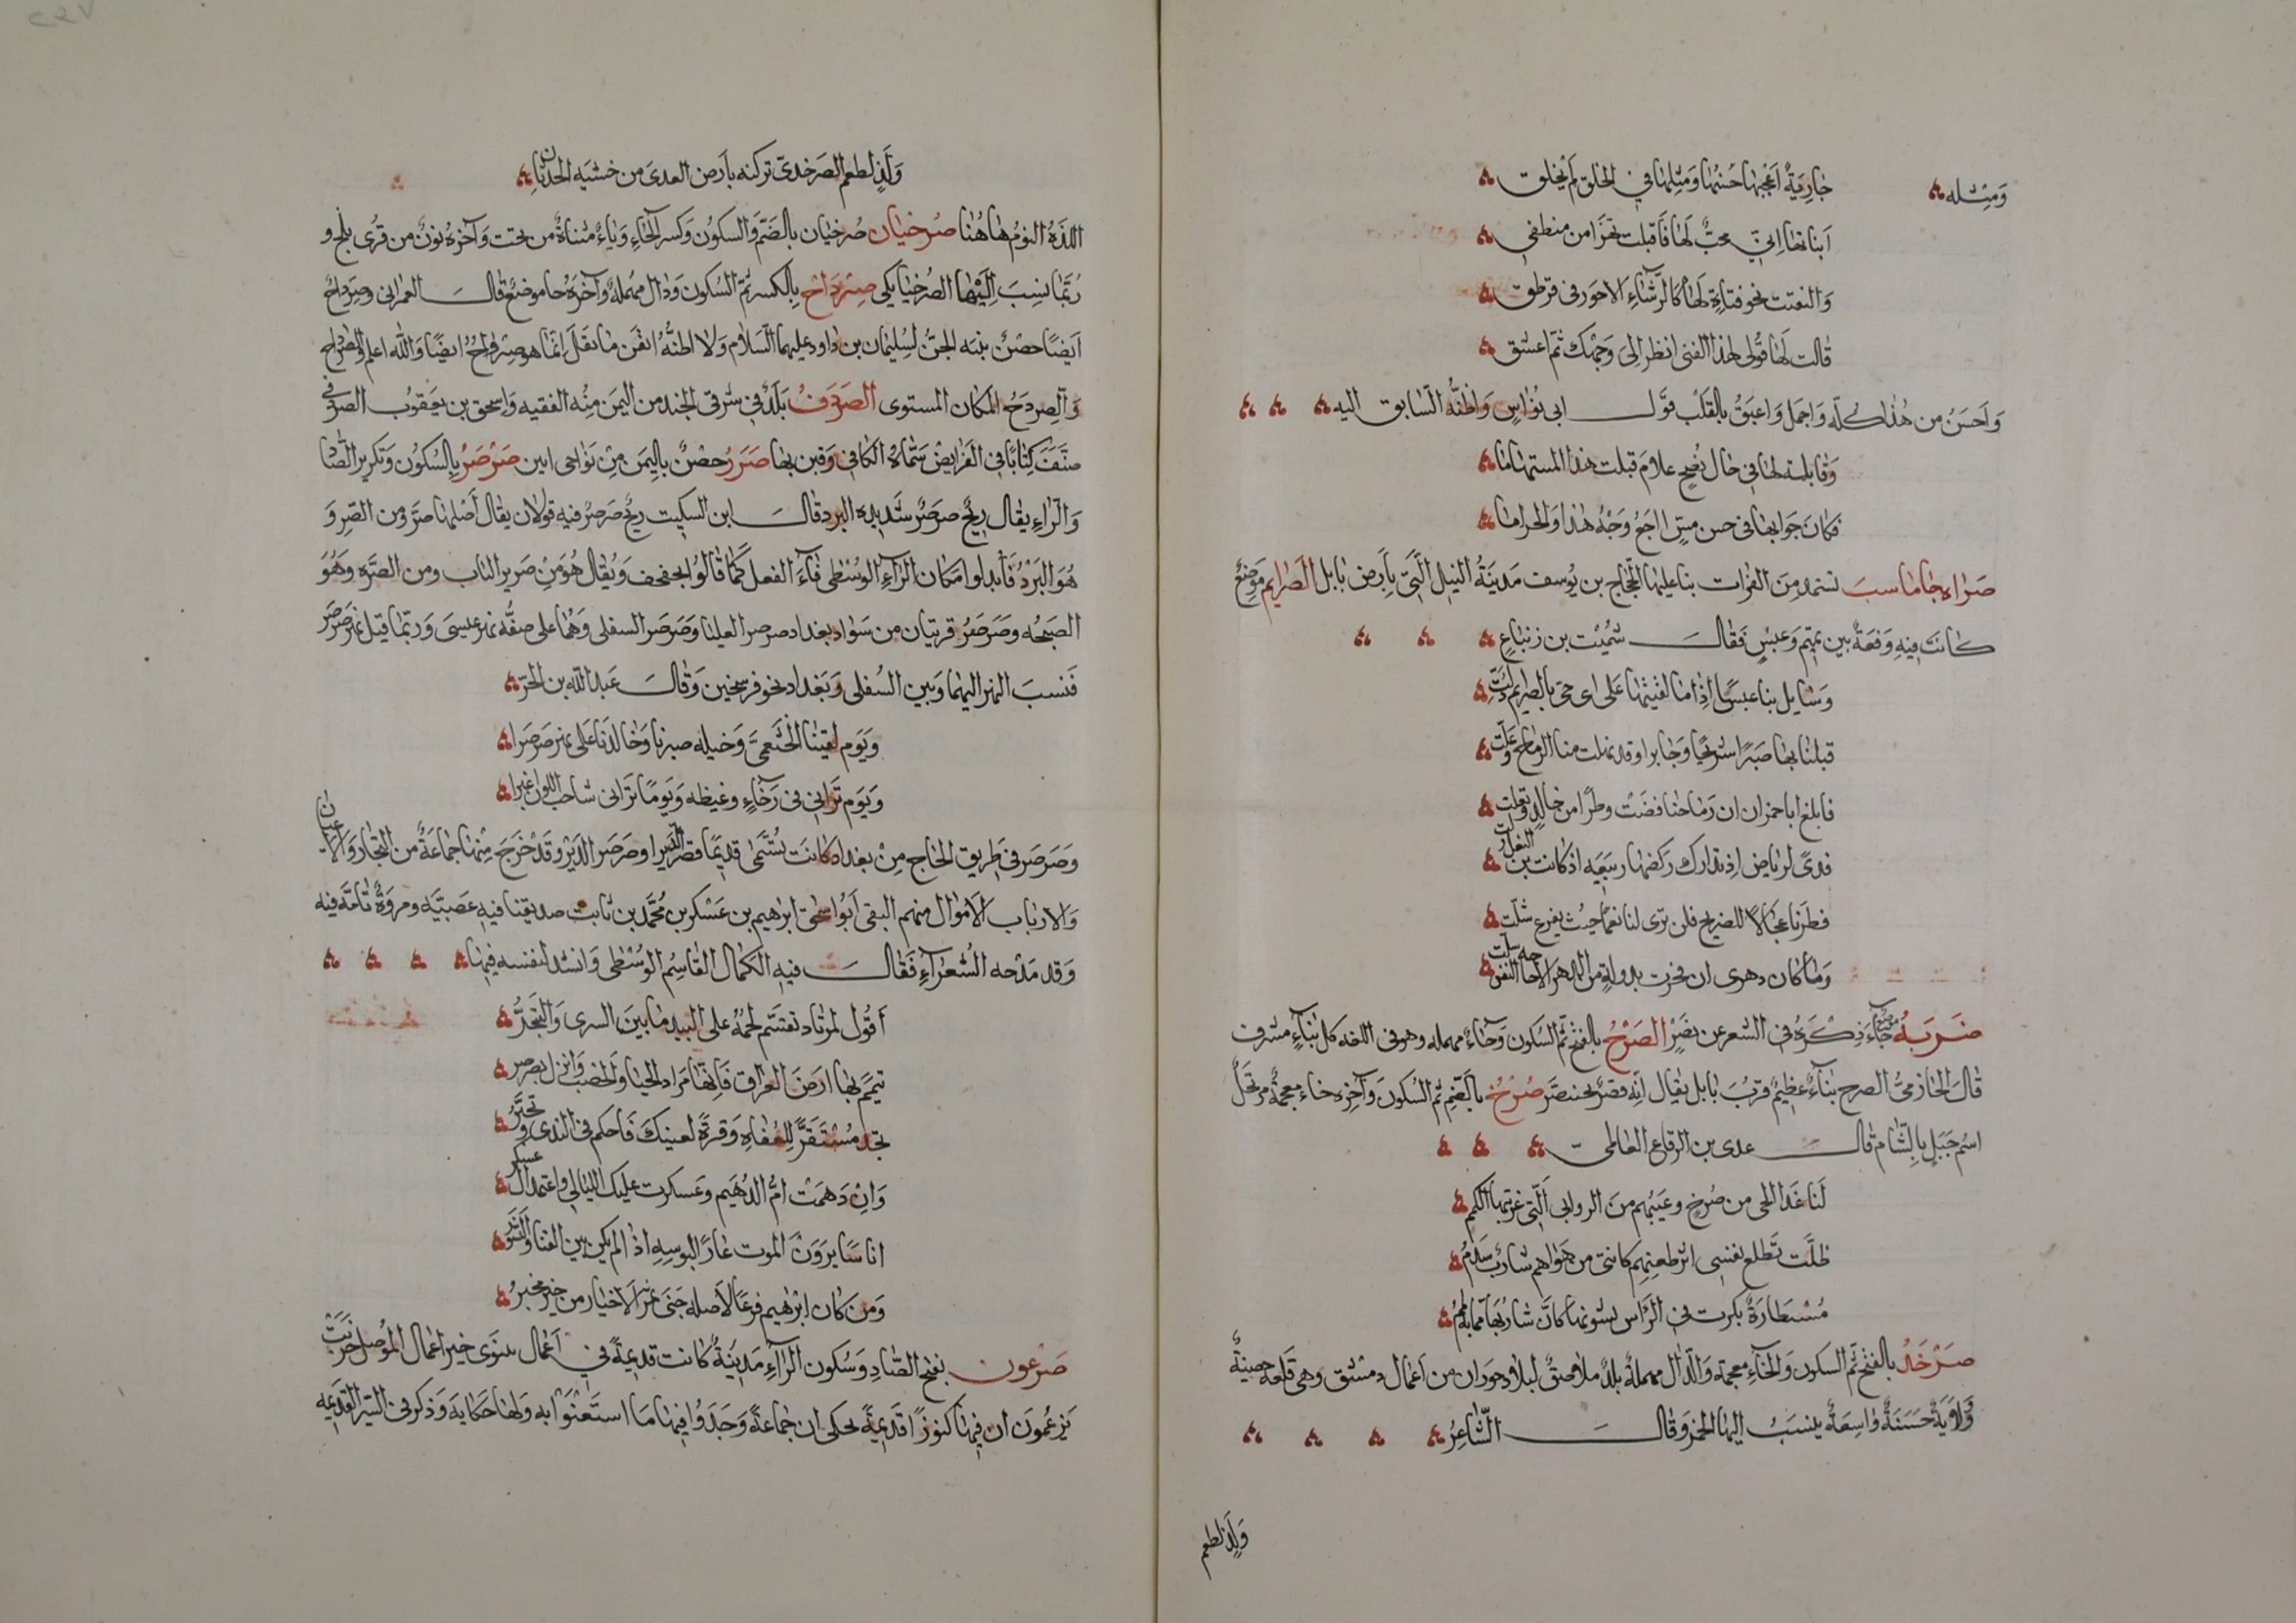 ومثله جارية اعجبها حسنها ومثلها في الخلق لم يخلق
انباتها اني محب لها فاقبلت تهزا من منطقي
والتفتت نحو فتاة لها كالرشاء الاحور في قرطق
قالت لها قولى لهذا الفتى انظر الى وجهك ثم اعشق
واحسن من هذا كله واجمل واعبق بالقلب قول ابى نواس واظنه السابق اليه
وقابلة لها في حال نصح علام قبلت هذا المستهاما
فكان جوابها في حسن ميس ااجمع وجه هذا والحراما
صراه جاماسب تستمد من الفرات بنا عليها الحجاج بن يوسف مدينة النيل التي بارض بابل الصرايم موضع
كانت فيه وقعة بين تميم وعبس فقال شميت بن زنباع
وسايل بنا عبسا اذا ما لقيتها على اى حى بالصرايم دلت
قبلنا بها صبرا شريحا وجابرا وقد نهلت منا الرماح وعلت
فابلغ ابا حمران ان رماحنا قضت وطرا من خالد وتعلت
فدى لرياض اذ تدارك ركضها ربيعه اذ كانت بن النعل زلت
فطرنا عجالا للصريخ فلن ترى لنا نعما حيث يفزع شلت
وما كان دهرى ان فخرت بدولة من الدهر الا حاجة النفس سلت
ضربة موضع جاء ذكره في الشعر عن نصر الصرح بالفتح ثم السكون وحاء مهمله وهو فى اللغه كل بناء مشرف
قال الحازمى الصرح بناء عظيم قرب بابل يقال انه قصر بختنصر صرخ بالضم ثم السكون وآخره خاء معجمة مرتجل
اسم جبل بالشام قال عدى بن الرقاع العاملى
لنا غدا الحى من صرخ وغيبهم من الروابى التي غربيها الكم
ظلت تطلع نفسى اثر ظعنهم كاننى من هواهم شارب سدم
مسطارة بكرت في الراس نشوتها كان شاربها مما به لمم
صرخد بالفتح ثم السكون والخاء معجمة والدال مهملة بلد ملاصق لبلاد حوران من اعمال دمشق وهى قلعه حصينة
وولاية حسنة واسعة ينسب اليها الخمر وقال الشاعر
ولذ لطعم
ولذ لطعم الصرخدى تركته بارض العدى من خشيه الحدثان
اللذه النوم هاهنا صرخيان صرخيان بالضم والسكون وكسر الخاء وياء مثناة من تحت وآخره نون من قرى بلخ و
ربما نسب اليها الصرخيا بكى صرداح بالكسر ثم السكون ودال مهملة وآخره حا موضع قال العمرانى وصرداح
ايضا حصن بنته الجن لسليمان بن داود عليهما السلام ولا اظنه اتقن ما نقل انما هو صرواح ايضا والله اعلم والصرداح
والصردح المكان المستوى الصردف بلد في شرقى الجند من اليمن منه الفقيه واسحق بن يعقوب الصردفى
صنف كتابا في الفرايض سماه الكافى وقبره بها صرر حصن باليمن من نواحى ابين صرصر بالسكون وتكرير الصاد
والراء يقال ريح صرصر شديده البرد قال ابن السكيت ريح صرصر فيه قولان يقال اصلها صرر من الصر و
هو البرد فابدلوا مكان الراء الوسطى فاء الفعل كما قالوا تجفجف ويقال هو من صرير الباب ومن الصره وهو
الصيحه وصرصر قريتان من سواد بغداد صرصر العليا وصرصر السفلى وهما على صفه نهر عيسى وربما قيل نهر صرصر
فنسب النهر اليهما وبين السفلى وبغداد نحو فرسخين وقال عبد الله بن الحر
ويوم لقينا الخثعمى وخيله صبرنا وخالدنا على نهر صرصرا
ويوم ترانى فى رخاء وغبطه ويوما ترانى شاحب اللون اغبرا
وصرصر فى طريق الحاج من بغداد كانت تسمى قديما قصر الدير او صرصر الدير وقد خرج منها جماعة من التجار والاعيان
والارباب الاموال منهم التقى ابو اسحق ابراهيم بن عسكر بن محمد بن ثابت صديقنا فيه عصبيه ومروة تامه فيه
وقد مدحه الشعراء فقال فيه الكمال القاسم الوسطى وانشد لنفسه فيها
اقول لمرتاد تقسم لحمه على البيد ما بين السرى والتهجر
تيمم بها ارض العراق فانها مراد الحيا والخصب وانزل بصرصر
تجد مستقرا للعفاه وقرة لعينك فاحكم في الندى وتخير
وان دهمت ام الدهيم وعسكرت عليك الليالي واعتمد ال عسكر
اناسا يرون الموت عارا لبوسه اذا لم يكن بين القنا والسنور
ومن كان ابراهيم فرعا لاصله جنى ثمر الاخيار من خير مخبر
صرعون بفتح الصاد وسكون الراء مدينة كانت قديمة في اعمال نينوى خير اعمال الموصل خربت
يزعمون ان فيها كنوزا قديمة يحكى ان جماعة وجدوا فيها ما استغنوا به ولها حكاية وذكر في السير القديمه